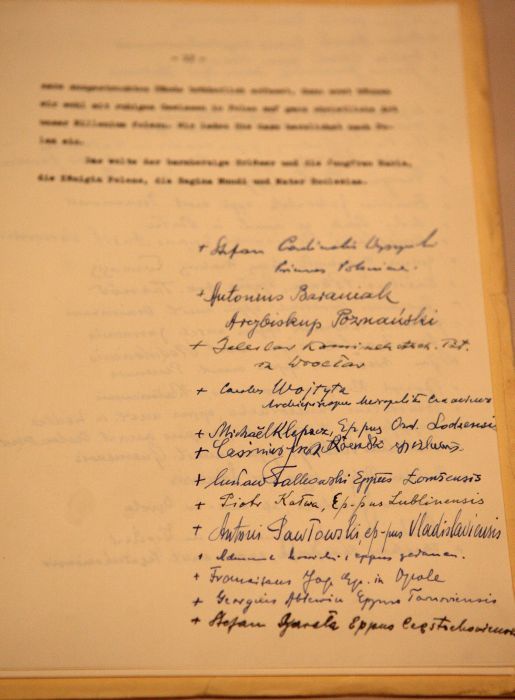 nete ausgestreckten Hände brüderlich erfasst, dann erst können
wir wohl mit ruhigem Gewissen in Polen auf ganz christliche Art
unser Millenium feiern. Wir laden Sie dazu herzlichst nach Po-
len ein.
Das walte der barmherzige Erlöser und die Jungfrau Maria,
die Königin Polens, die Regina Mundi und Mater Ecclesiae.
+ Stefan Cardinalis Wyszyński
Primas Poloniae.
+ Antonius Baraniak
Arcybiskup Poznański
+ Boleslav Kominek
Wrocław
+ Carolus Wojtyła
Archiepiscopus Metropolita Cracoviensis
+ Michał Klepacz, Ep-pus Ord. Lodzensis
+ Czesław Falkowski Eppus Łomżensis
+ Piotr Kałwa, Ep-pus Lublinensis
+ Antoni Pawłowski, ep-pus Vladislaviensis
+ Franciscus Jop Ep. in Opole
+ Georgius Ablewicz Eppus Tarnoviensis
+ Stefan Bareła Eppus Częstochoviensis